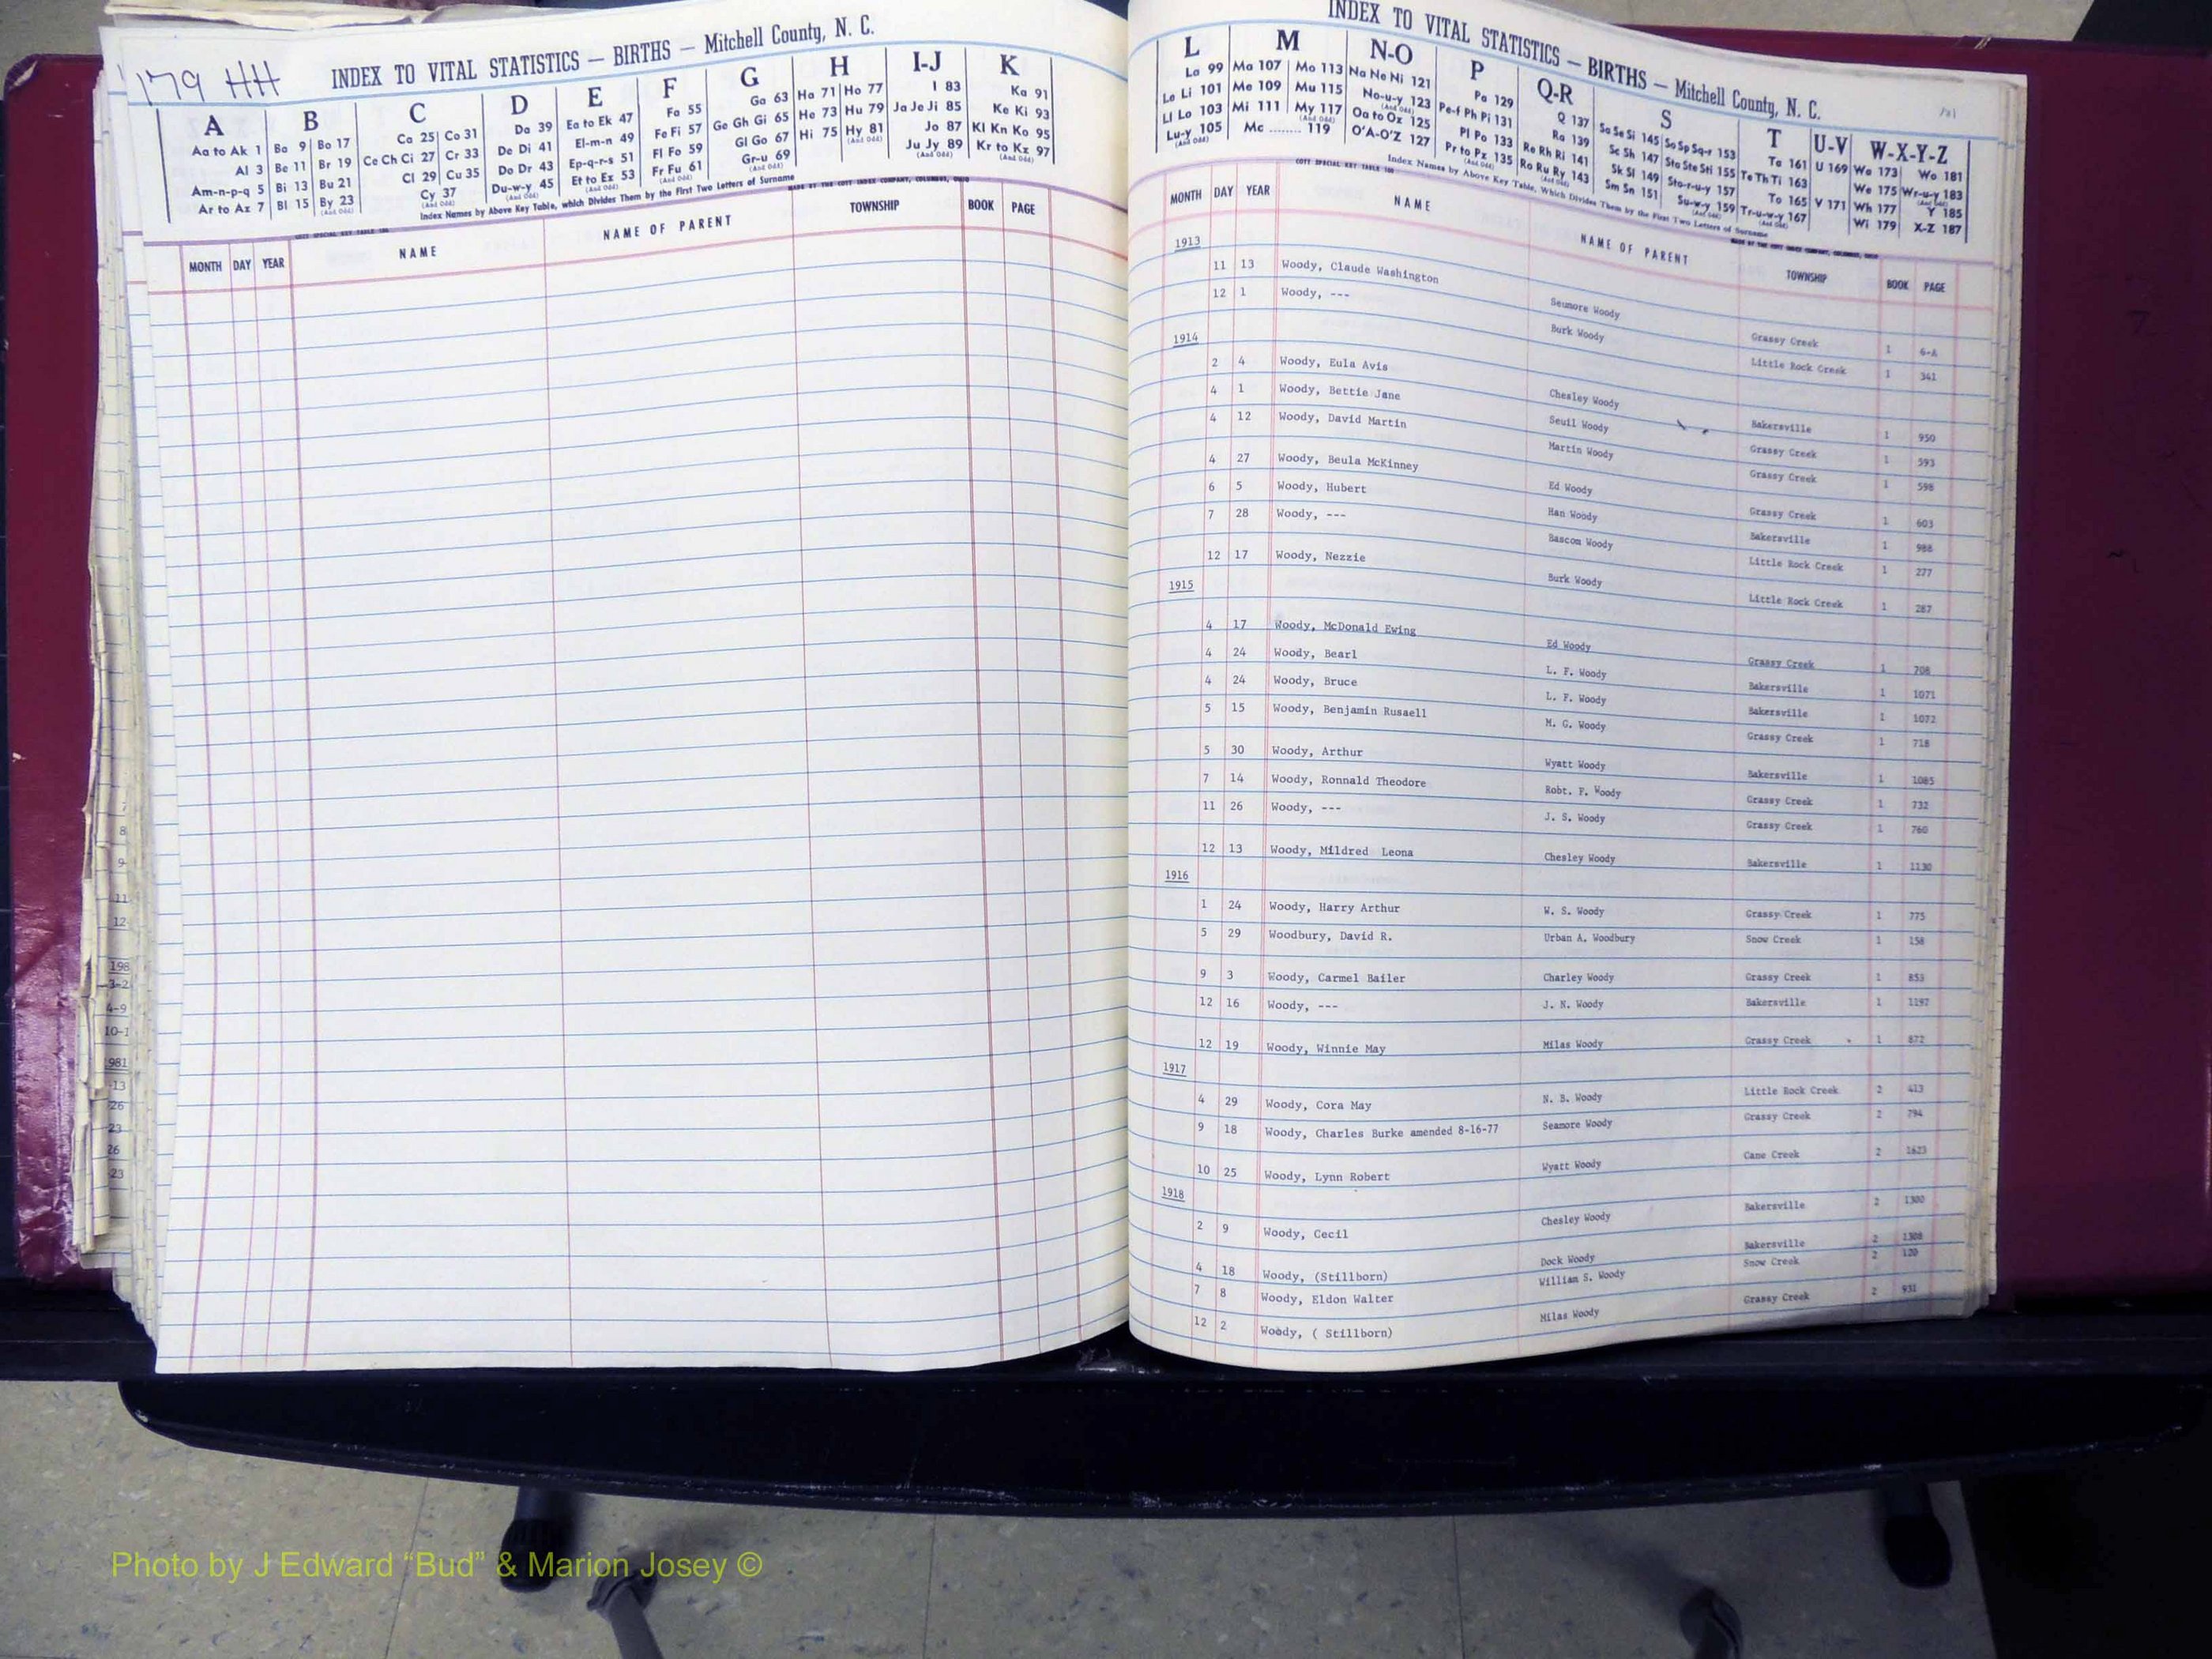 179 HH
INDEX TO VITAL STATISTICS — BIRTHS — Mitchell County, N. C.
A B C D E F G H I-J K
Aa to Ak 1 Ba 9 Bo 17 Ca 25 Co 31 Da 39 Ea to Ek 47 Fa 55 Ga 63 Ha 71 Ho 77 I 83 Ka 91
Al 3 Be 11 Br 19 Ce Ch Ci 27 Cr 33 De Di 41 El-m-n 49 Fe Fi 57 Ge Gh Gi 65 He 73 Hu 79 Ja Je Ji 85 Ke Ki 93
Am-n-p-q 5 Bi 13 Bu 21 Cl 29 Cu 35 Do Dr 43 Ep-q-r-s 51 Fl Fo 59 Gl Go 67 Hi 75 Hy 81 (And Odd) Jo 87 Kl Kn Ko 95
Ar to Az 7 Bl 15 By 23 (And Odd) Cy 37 (And Odd) Du-w-y 45 (And Odd) Et to Ez 53 (And Odd) Fr Fu 61 (And Odd) Gr-u 69 (And Odd) Ju Jy 89 (And Odd) Kr to Kz 97 (And Odd)
Index Names by Above Key Table, which Divides Them by the First Two Letters of Surname
COTT SPECIAL KEY TABLE MADE BY THE COTT INDEX COMPANY, COLUMBUS, OHIO
MONTH DAY YEAR NAME NAME OF PARENT TOWNSHIP BOOK PAGE
7
8
9
11
12
198
3-2
4-9
10-1
981
13
26
23
26
23
INDEX TO VITAL STATISTICS — BIRTHS — Mitchell County, N. C.
181
L M N-O P Q-R S T U-V W-X-Y-Z
La 99 Ma 107 Mo 113 Na Ne Ni 121 Pa 129 Q 137 Sa Se Si 145 So Sp Sq-r 153 Ta 161 U 169 Wa 173 Wo 181
Le Li 101 Me 109 Mu 115 No-u-y 123 (And Odd) Pe-f Ph Pi 131 Ra 139 Sc Sh 147 Sta Ste Sti 155 Te Th Ti 163 We 175 Wr-u-y 183 (And Odd)
Ll Lo 103 Mi 111 My 117 (And Odd) Oa to Oz 125 Pl Po 133 Re Rh Ri 141 Sk Sl 149 Sto-r-u-y 157 To 165 V 171 Wh 177 Y 185
Lu-y 105 (And Odd) Mc ........ 119 O'A-O'Z 127 Pr to Pz 135 (And Odd) Ro Ru Ry 143 (And Odd) Sm Sn 151 Su-w-y 159 (And Odd) Tr-u-w-y 167 (And Odd) Wi 179 X-Z 187
Index Names by Above Key Table, Which Divides Them by the First Two Letters of Surname
COTT SPECIAL KEY TABLE MADE BY THE COTT INDEX COMPANY, COLUMBUS, OHIO
MONTH DAY YEAR NAME NAME OF PARENT TOWNSHIP BOOK PAGE
1913
11 13 Woody, Claude Washington Seumore Woody Grassy Creek 1 6-A
12 1 Woody, --- Burk Woody Little Rock Creek 1 341
1914
2 4 Woody, Eula Avis Chesley Woody Bakersville 1 950
4 1 Woody, Bettie Jane Seuil Woody Grassy Creek 1 593
4 12 Woody, David Martin Martin Woody Grassy Creek 1 598
4 27 Woody, Beula McKinney Ed Woody Grassy Creek 1 603
6 5 Woody, Hubert Han Woody Bakersville 1 988
7 28 Woody, --- Bascom Woody Little Rock Creek 1 277
12 17 Woody, Nezzie Burk Woody Little Rock Creek 1 287
1915
4 17 Woody, McDonald Ewing Ed Woody Grassy Creek 1 708
4 24 Woody, Bearl L. F. Woody Bakersville 1 1071
4 24 Woody, Bruce L. F. Woody Bakersville 1 1072
5 15 Woody, Benjamin Rusaell M. G. Woody Grassy Creek 1 718
5 30 Woody, Arthur Wyatt Woody Bakersville 1 1085
7 14 Woody, Ronnald Theodore Robt. F. Woody Grassy Creek 1 732
11 26 Woody, --- J. S. Woody Grassy Creek 1 760
12 13 Woody, Mildred Leona Chesley Woody Bakersville 1 1130
1916
1 24 Woody, Harry Arthur W. S. Woody Grassy Creek 1 775
5 29 Woodbury, David R. Urban A. Woodbury Snow Creek 1 158
9 3 Woody, Carmel Bailer Charley Woody Grassy Creek 1 853
12 16 Woody, --- J. N. Woody Bakersville 1 1197
12 19 Woody, Winnie May Milas Woody Grassy Creek 1 872
1917
4 29 Woody, Cora May N. B. Woody Little Rock Creek 2 413
9 18 Woody, Charles Burke amended 8-16-77 Seamore Woody Grassy Creek 2 794
10 25 Woody, Lynn Robert Wyatt Woody Cane Creek 2 1623
1918
2 9 Woody, Cecil Chesley Woody Bakersville 2 1300
4 18 Woody, (Stillborn) Dock Woody Bakersville 2 1308
7 8 Woody, Eldon Walter William S. Woody Snow Creek 2 120
12 2 Woody, ( Stillborn) Milas Woody Grassy Creek 2 931
Photo by J Edward "Bud" & Marion Josey ©